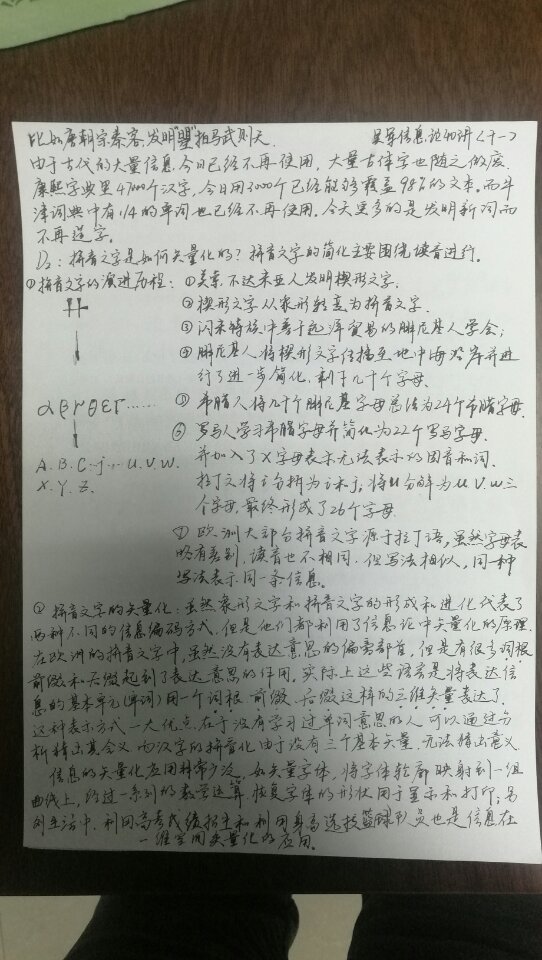 比如唐朝宗秦客发明"曌"拍马武则天. 吴军信息论40讲<十一>
由于古代的大量信息今日已经不再使用, 大量古怪字也随之作废.
康熙字典里47000个汉字, 今日用3000个已经能够覆盖98%的文本. 而牛
津词典中有1/4的单词也已经不再使用. 今天更多的是发明新词而
不再造字.
D₂: 拼音文字是如何矢量化的? 拼音文字的简化主要围绕读音进行.
①拼音文字的演进历程: ①美索不达米亚人发明楔形文字.
②楔形文字从象形转变为拼音文字.
③闪米特族中善于远洋贸易的腓尼基人学会;
④腓尼基人将楔形文字传播至地中海沿岸并进
行了进一步简化, 剩下几十个字母.
αβγθεΓ…… ⑤希腊人将几十个腓尼基字母总结为24个希腊字母.
⑥罗马人学习希腊字母并简化为22个罗马字母.
A.B.C…j…U.V.W. 并加入了X字母表示无法表示的因音和词.
X.Y.Z. 拉丁文将i分拆为i和j; 将u分解为U.V.W三
个字母, 最终形成了26个字母.
⑦欧洲大部分拼音文字源于拉丁语, 虽然字母表
略有差别, 读音也不相同. 但写法相似, 同一种
写法表示同一条信息.
②拼音文字的矢量化: 虽然象形文字和拼音文字的形成和进化代表了
两种不同的信息编码方式, 但是他们都利用了信息论中矢量化的原理.
在欧洲的拼音文字中, 虽然没有表达意思的偏旁部首, 但是有很多词根
前缀和后缀起到了表达意思的作用. 实际上这些语言是将表达信
息的基本单元(单词)用一个词根、前缀、后缀这样的三维矢量表达了.
这种表示方式一大优点在于没有学习过单词意思的人可以通过分
析猜出其含义. 而汉字的拼音化由于没有三个基本矢量, 无法猜出意义.
信息的矢量化应用非常广泛. 如矢量字体, 将字体轮廓映射到一组
曲线上, 经过一系列的数学运算, 恢复字体的形状用于显示和打印; 另
外生活中, 利用高考成绩招生和利用身高选拔篮球队员也是信息在
一维空间矢量化的应用.